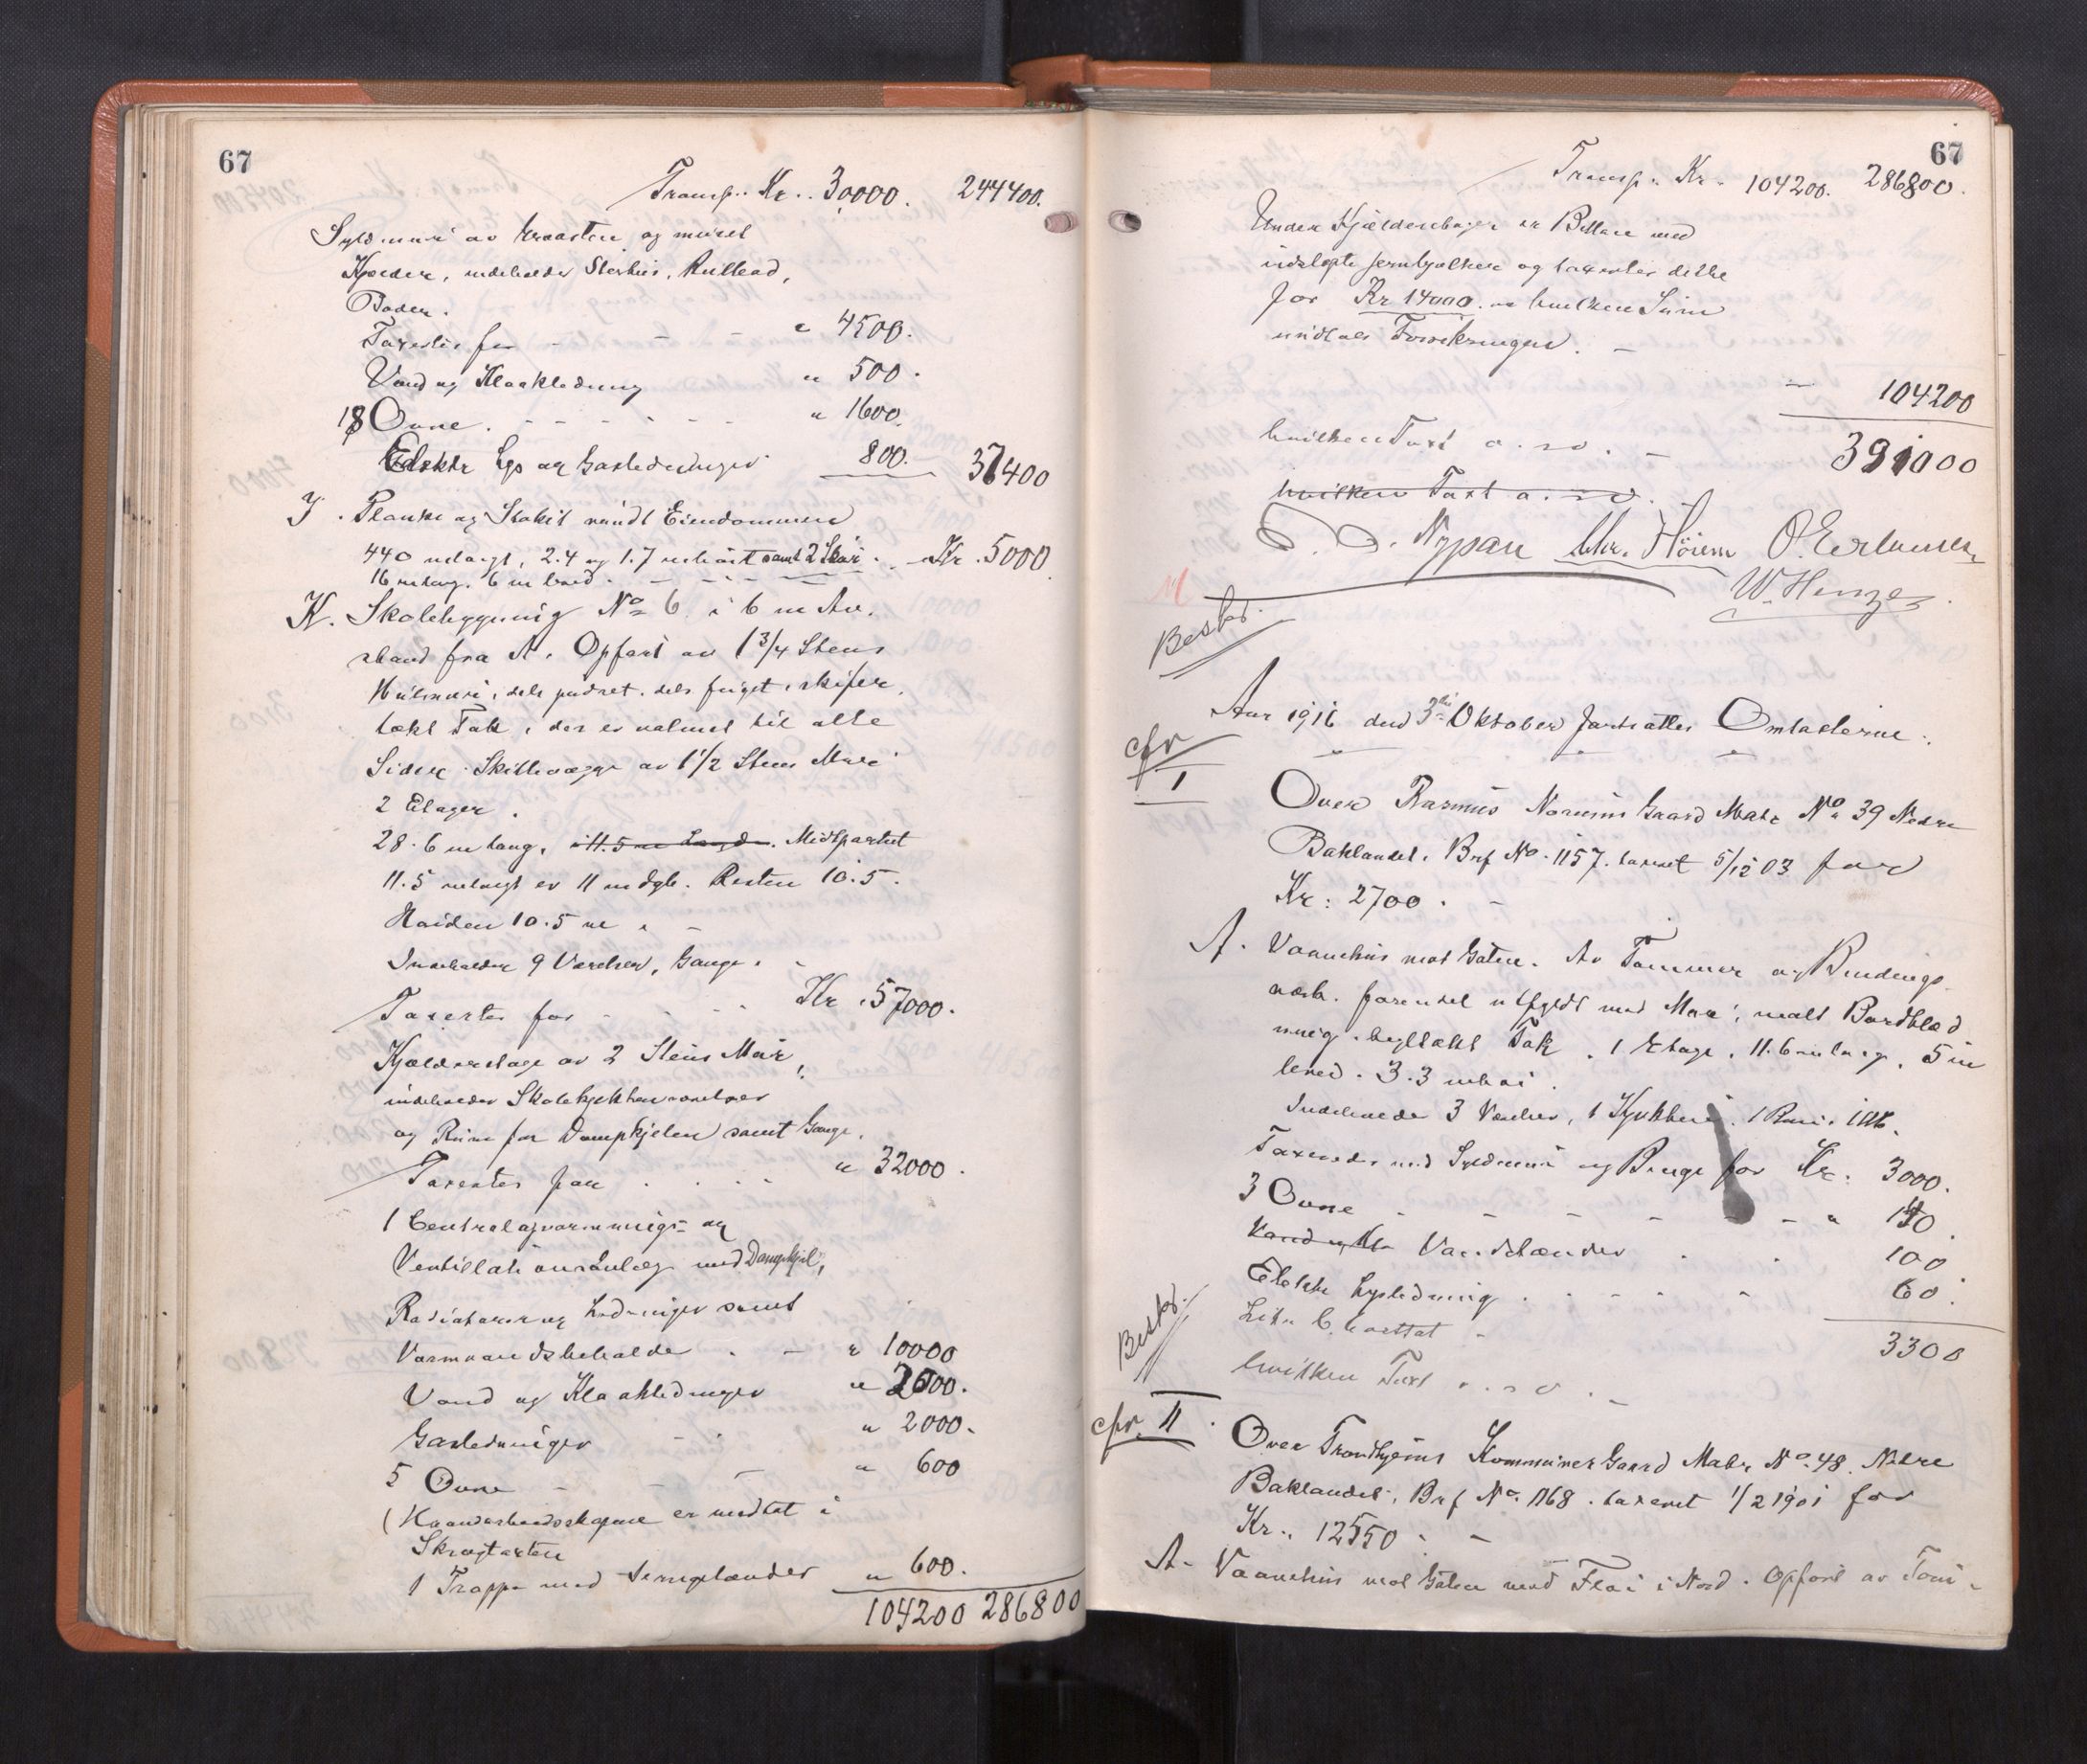 67
Transp. Kr. 30000. 244400.
Syldmur av Graasten og muret
Kjælder, indeholder Rullebod,
Boder.
Taxeres for - - " 4500.
Vand og Kloakledning " 500.
18 Ovne. - - - - - " 1600.
Elektr Lys og Gasledninger 800. 37400
J. Planke og Stakit rundt Eiendommen
440 m langt, 2.4 og 1.7 m høit samt 2 Skur. Kr. 5000.
16 m lang. 6 m bred. - - - -
K. Skolebygning No 6 i 6 m Av.
stand fra A. Opført av 1 3/4 Stens
Hulmur, dels pudset. dels fuget, skifer
tækt Tak, der er valmet til alle
Sider. Skillevægge av 1 1/2 Stens Mur
2 Etager.
28.6 m lang, 11.5 m Længde. Midtpartiet
11.5 m langt er 11 m dyb. Resten 10.5.
Høiden 10.5 m. -
Indeholder 9 Værelser, Gange. -
Taxeres for - - - - Kr. 57000.
Kjælderetage av 2 Stens Mur,
indeholder Skolekjøkken
og Rum for Dampkjelen samt Gange.
Taxeres for . . . . " 32000.
1 Centralopvarmnings- og
Ventillationsanlæg med Dampkjel,
Radiatorer og Ledninger samt
Varmvandsbeholder . - " 10000
Vand og Kloakledninger " 2000.
Gasledninger - - " 2000.
5 Ovne - - - " 600
er medtat i
Skrogtaxten
1 Trappe med Jerngelænder " 600.
104200 286800
67
Transp. Kr. 104200. 286800.
Under Kjælderetagen er Bettone med
indstøpte Jernbjælker og taxeres dette
for Kr 14000. - hvilken Sum
undtas Forsikringen. -
- 104200
hvilken Taxt a. s. o. - 391000
hvilken Taxt a. s. o.
O. O. Nypan Chr. Høiem O. Erlandsen
W. Henze
Beskr.
Aar 1916 den 3die Oktober fortsattes Omtaxterne.
cfr
I
Over Rasmus Gaard Matr No 39 Nedre
Baklandet. Brf No. 1157. taxeret 5/12 03 for
Kr: 2700. -
A. Vaanehus mot Gaten. Av Tømmer og Bindings
værk. forendel utfyldt med Mur, malt Bordklæd
ning. tegltækt Tak. 1 Etage. 11.6 m lang. 5 m
bred. 3.3 m høi.
Indeholder 3 Værelser, 1 Kjøkken. 1
Taxeredes med Syldmur og Bruge for Kr. 3000.
3 Ovne - - - - - - " 140.
Vand og Kl. Vandstænder . . 100
Elektr Lysledning . . . . . 60.
Litr C. borttat - 3300
Beskr.
hvilken Taxt a. s. o. -
cfr. II. Over Trondhjems Kommunes Gaard Matr No. 48. Nedre
Baklandet. Brf No. 1168. taxeret 1/2 1901 for
Kr. 12550. -
A. Vaanehus mot Gaten med Fløi i Nord. Opført av Tøm-